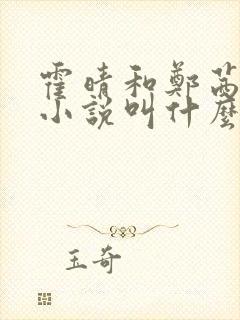 霍晴和鄭茜
小說叫什麼
玉奇